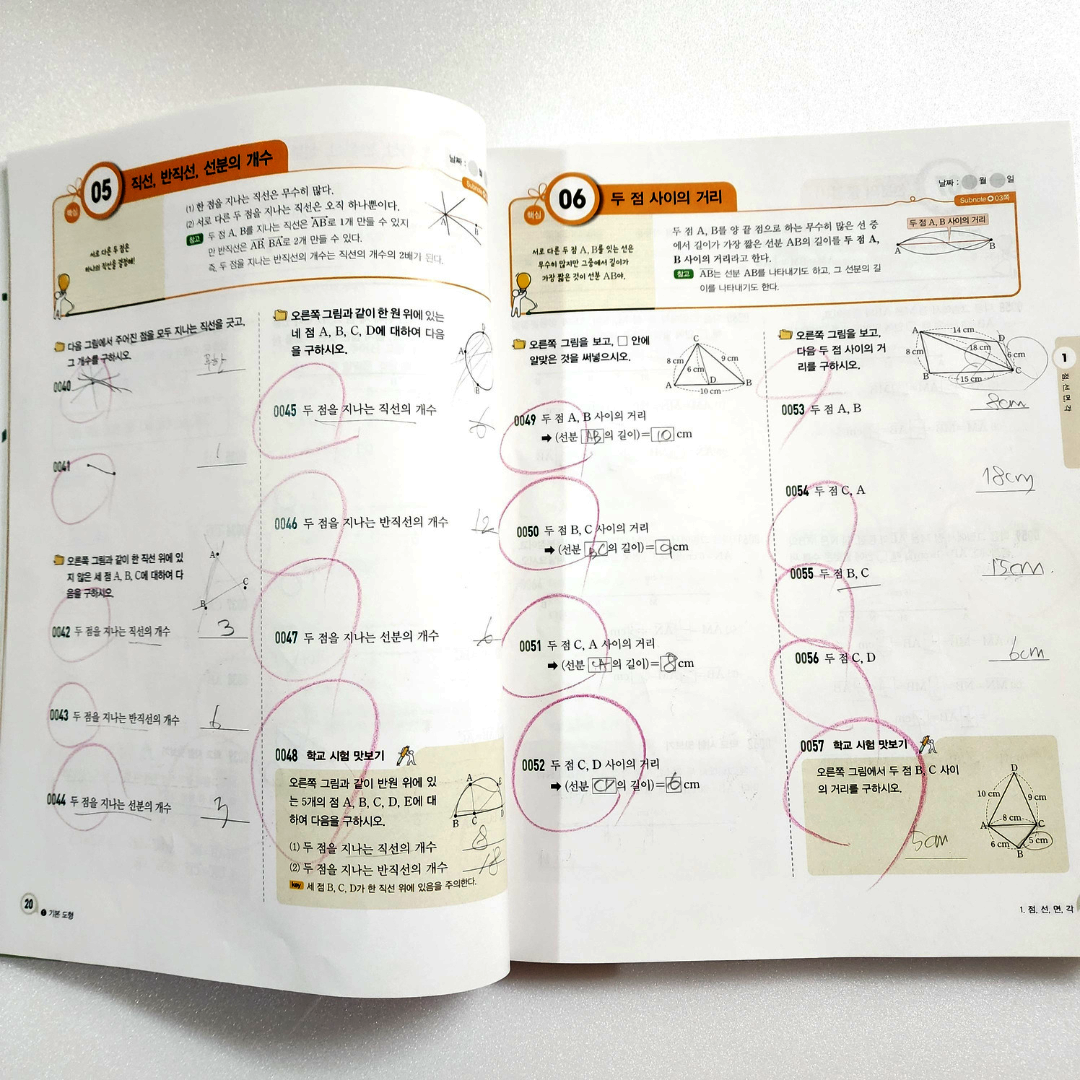 05 직선, 반직선, 선분의 개수
날짜 :
핵심
Subnote
(1) 한 점을 지나는 직선은 무수히 많다.
(2) 서로 다른 두 점을 지나는 직선은 오직 하나뿐이다.
참고 두 점 A, B를 지나는 직선은 AB로 1개 만들 수 있지
만 반직선은 AB, BA로 2개 만들 수 있다.
즉, 두 점을 지나는 반직선의 개수는 직선의 개수의 2배가 된다.
서로 다른 두 점은
하나의 직선을 결정해!
A
B
다음 그림에서 주어진 점을 모두 지나는 직선을 긋고,
그 개수를 구하시오.
0040
무한
0041
1
오른쪽 그림과 같이 한 직선 위에 있
지 않은 세 점 A, B, C에 대하여 다
음을 구하시오.
A
C
B
0042 두 점을 지나는 직선의 개수
3
0043 두 점을 지나는 반직선의 개수
6
0044 두 점을 지나는 선분의 개수
3
오른쪽 그림과 같이 한 원 위에 있는
네 점 A, B, C, D에 대하여 다음
을 구하시오.
A
D
B
0045 두 점을 지나는 직선의 개수
6
0046 두 점을 지나는 반직선의 개수
12
0047 두 점을 지나는 선분의 개수
6
0048 학교 시험 맛보기
오른쪽 그림과 같이 반원 위에 있
는 5개의 점 A, B, C, D, E에 대
하여 다음을 구하시오.
A
B C D
(1) 두 점을 지나는 직선의 개수
8
(2) 두 점을 지나는 반직선의 개수
18
key 세 점 B, C, D가 한 직선 위에 있음을 주의한다.
20
기본 도형
06 두 점 사이의 거리
날짜 : 월 일
핵심
Subnote 03쪽
서로 다른 두 점 A, B를 잇는 선은
무수히 많지만 그중에서 길이가
가장 짧은 것이 선분 AB야.
두 점 A, B를 양 끝 점으로 하는 무수히 많은 선 중
에서 길이가 가장 짧은 선분 AB의 길이를 두 점 A,
B 사이의 거리라고 한다.
참고 AB는 선분 AB를 나타내기도 하고, 그 선분의 길
이를 나타내기도 한다.
두 점 A, B 사이의 거리
A
B
오른쪽 그림을 보고, □ 안에
알맞은 것을 써넣으시오.
C
8 cm
6 cm
9 cm
A
D
B
10 cm
0049 두 점 A, B 사이의 거리
➡ (선분 AB의 길이)=10 cm
0050 두 점 B, C 사이의 거리
➡ (선분 BC의 길이)=9 cm
0051 두 점 C, A 사이의 거리
➡ (선분 CA의 길이)=8 cm
0052 두 점 C, D 사이의 거리
➡ (선분 CD의 길이)=6 cm
오른쪽 그림을 보고,
다음 두 점 사이의 거
리를 구하시오.
A
14 cm
D
8 cm
18 cm
6 cm
B
15 cm
C
0053 두 점 A, B
8cm
0054 두 점 C, A
18cm
0055 두 점 B, C
15cm
0056 두 점 C, D
6cm
0057 학교 시험 맛보기
오른쪽 그림에서 두 점 B, C 사이
의 거리를 구하시오.
D
10 cm
9 cm
8 cm
A
C
6 cm
5 cm
B
5cm
1
점, 선, 면, 각
1. 점, 선, 면, 각